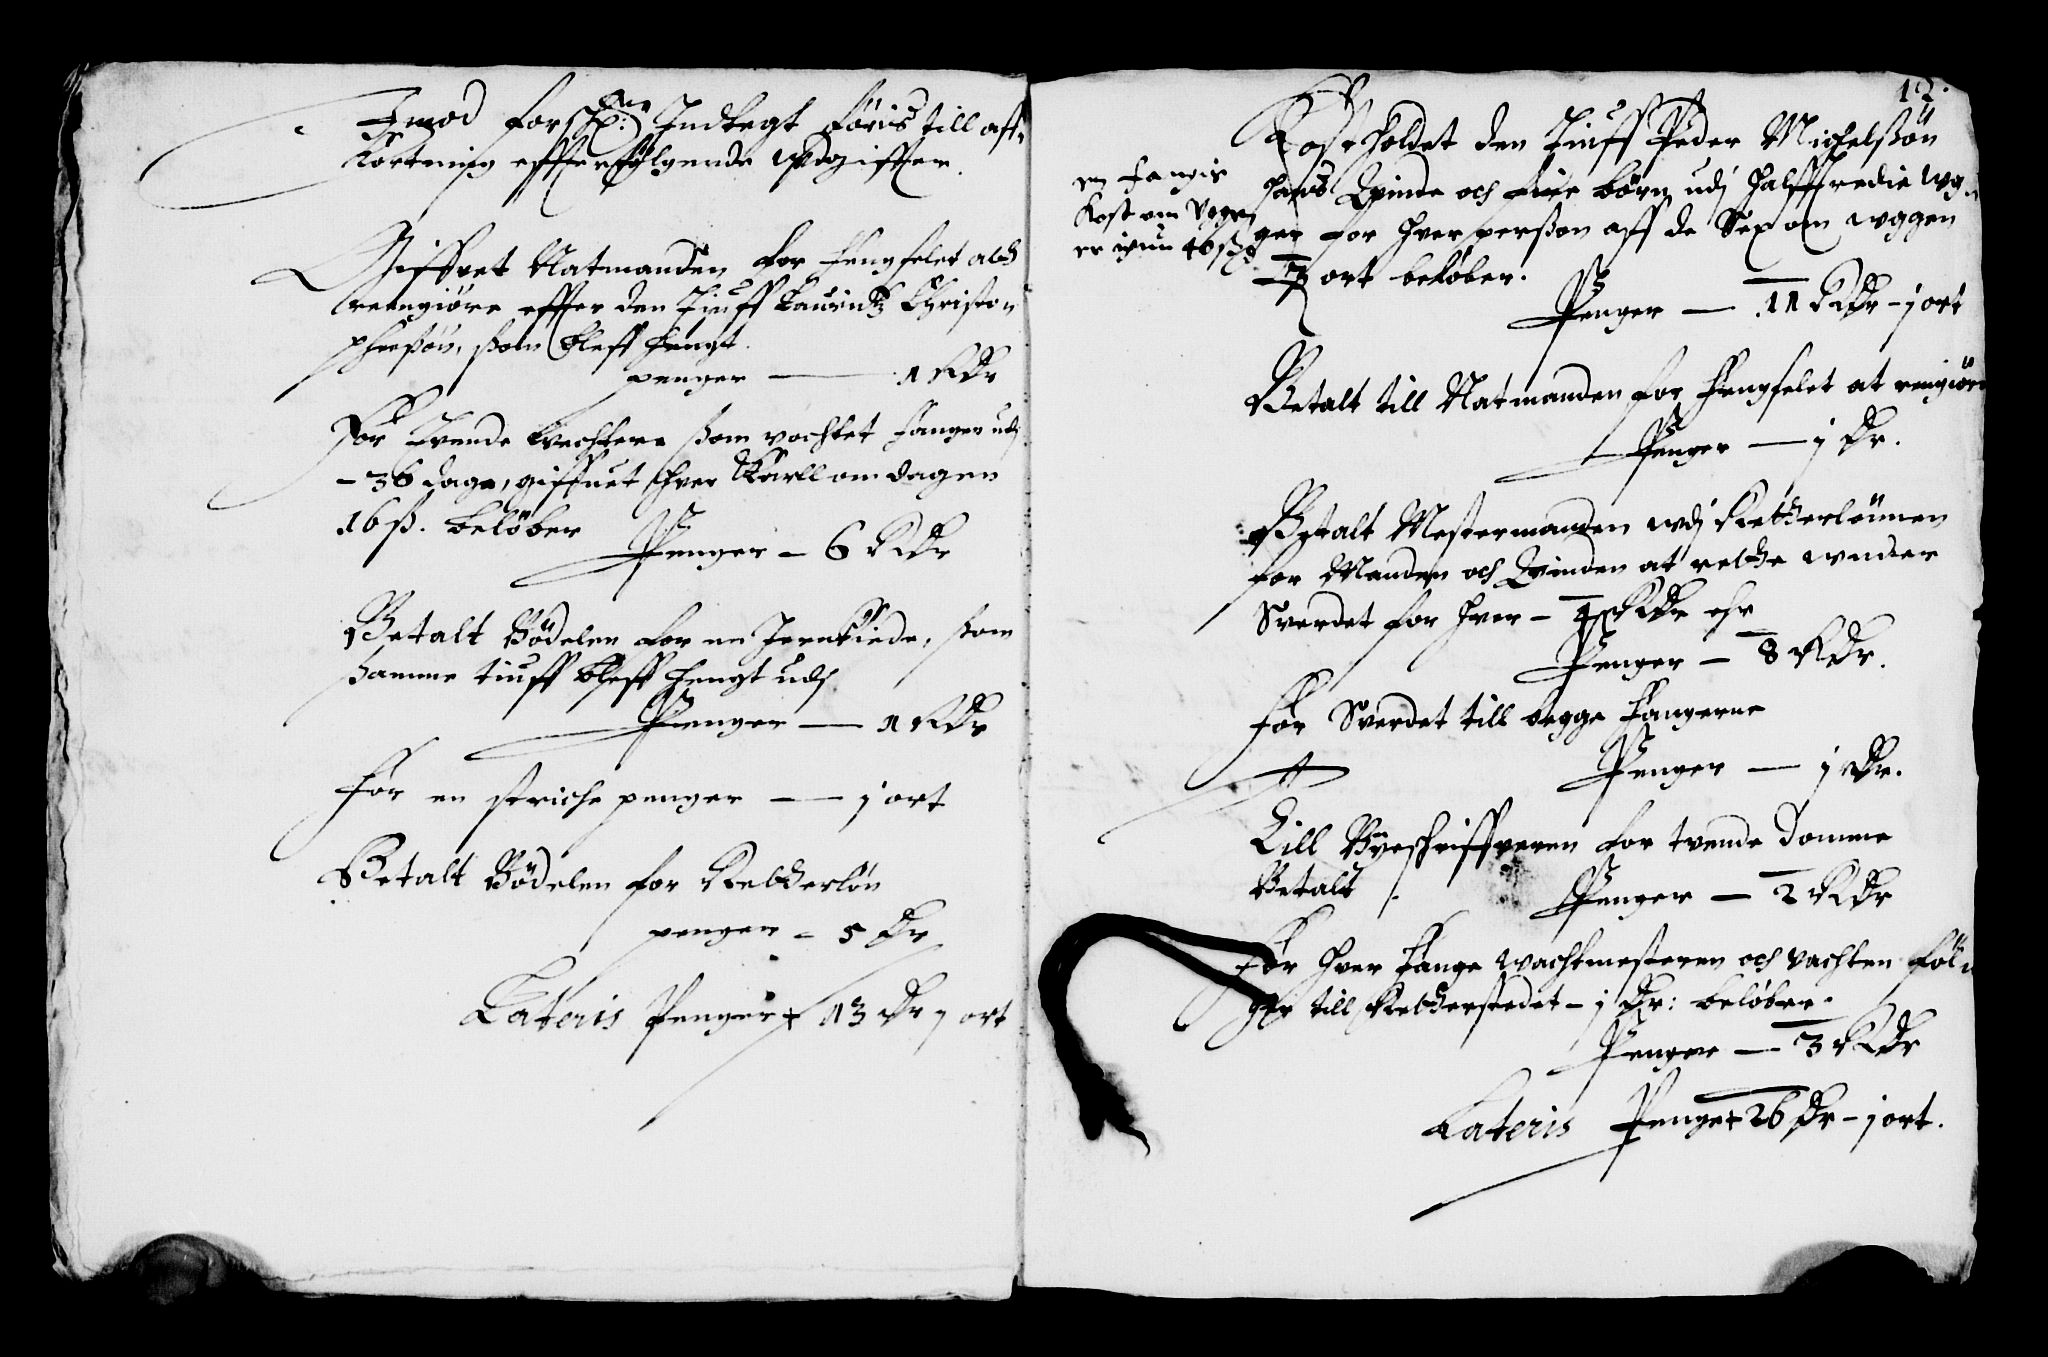 Imod forschne: Indtegt föris till aff-
kortning effterfölgende wdgiffter.
Giffvet Natmanden for fengselet att
reengiöre effter den Tiuff Lauridtz Christon
phersön, som bleff hengt.
penger — 1 Rdr
For Tvende Vechtere som vachtet fangen udj
- 36 dage, giffuet hver Karll om dagen
16 ß. belöber
Penger - 6 Rdr
Betalt Bödelen for en Jernkiede, som
samme tiuff bleff hengt udj
Penger — 1 Rdr
For en striche penger — j ort
Betalt Bödelen for Retterlön
penger - 5 Dr
Lateris Penger 13 Dr j ort
12.
Kostholdet den Tiuff Peder Michelsön
hans Qvinde och fire börn udj halfftredie wg-
ger for hver person aff de Sex om wggen
3 ort beløber.
Penger — 11 Rdr - j ort
en fangis
kost om Vgen
er icun 46 ß
Betalt till Natmanden for Fengselet at rengiöre
Penger — j Dr.
Betalt Mestermanden wdj Retterlönnen
for Manden och Qvinden at rette wnder
Sverdet for hver - 4 Rdr ehr
Penger — 8 Rdr.
For Sverdet till begge Fangerne
Penger — j Dr.
Till Byeschriffveren for tvende Domme
Betalt
Penger — 2 Rdr
For hver Fange wachtmesteren och vachten föl-
ger till Retterstedet - j Dr: belöber.
Penger — 3 Rdr
Lateris Penger 26 Dr - j ort.